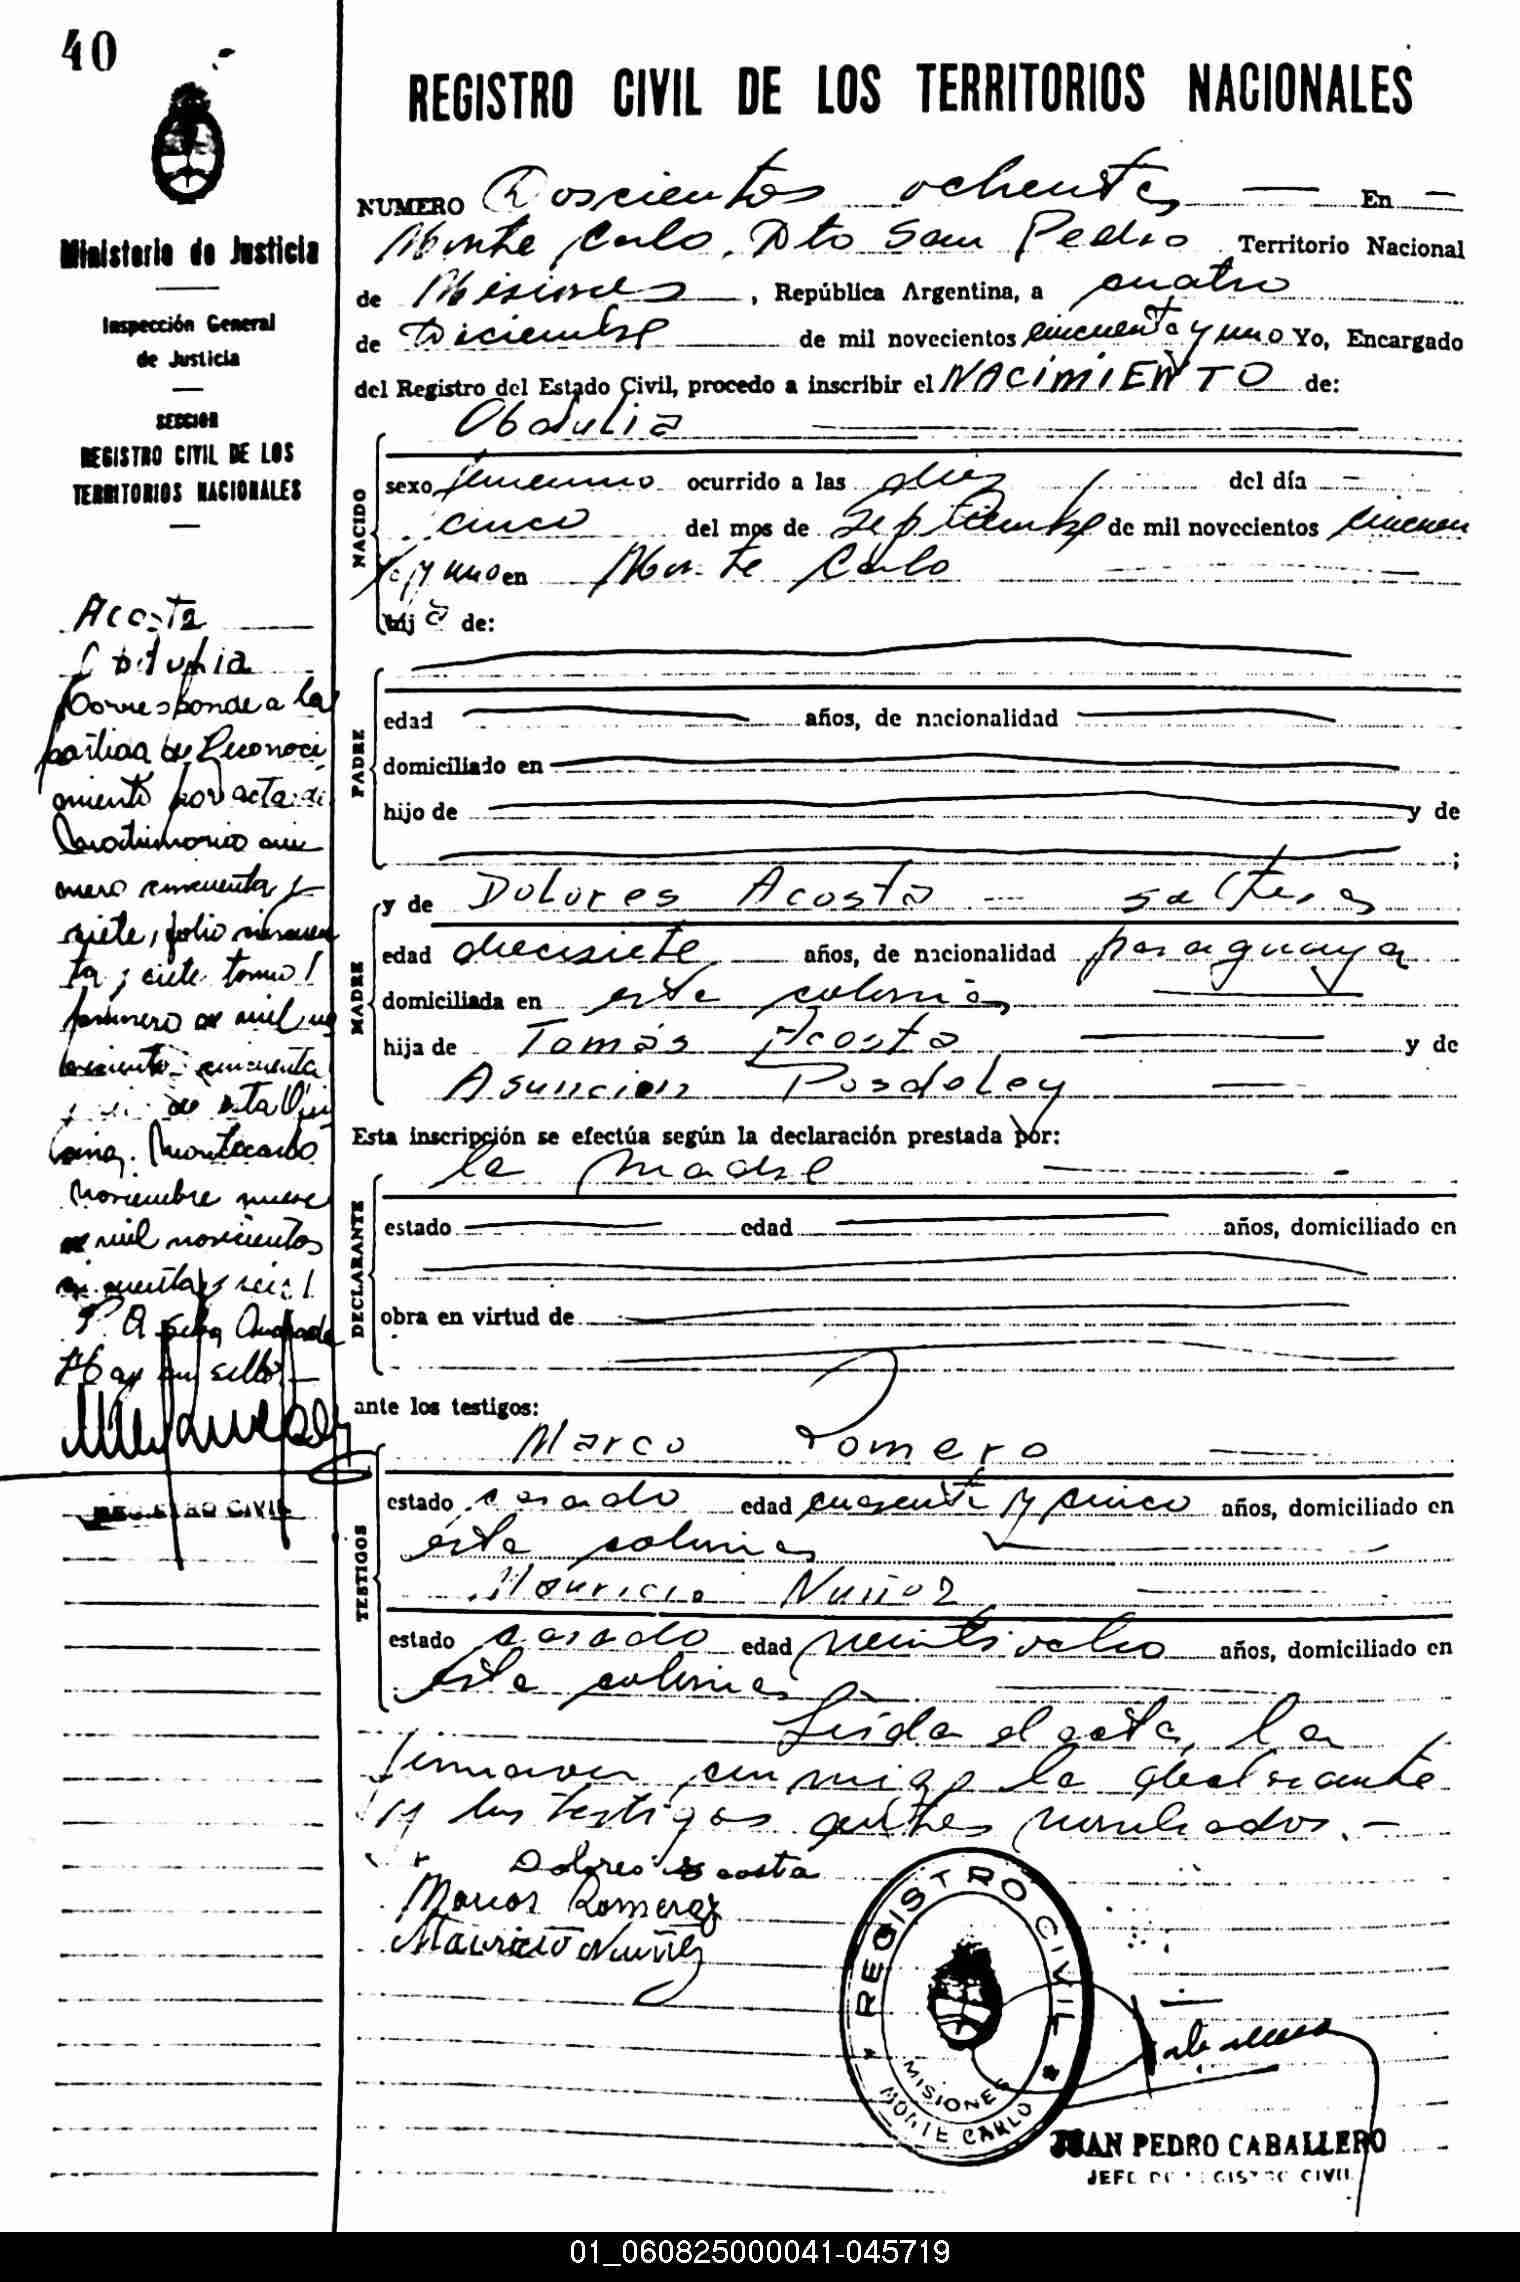 40
Ministerio de Justicia
Inspección General
de Justicia
SECCION
REGISTRO CIVIL DE LOS
TERRITORIOS NACIONALES
Acosta
Obdulia
Corresponde a la
partida de Reconoci
miento por acta de
Matrimonio nu
mero cincuenta y
siete, folio
ta y siete tomo 1
primero de mil no
vecientos cincuenta
de esta Ofi
cina. Montecarlo
Noviembre nueve
de mil novecientos
cincuenta y seis
Hay un sello
REGISTRO CIVIL
REGISTRO CIVIL DE LOS TERRITORIOS NACIONALES
NUMERO Doscientos ochenta — En —
Monte Carlo, Dto San Pedro Territorio Nacional
de Misiones, República Argentina, a cuatro
de Diciembre de mil novecientos cincuenta y uno Yo, Encargado
del Registro del Estado Civil, procedo a inscribir el NACIMIENTO de:
Obdulia
NACIDO
sexo femenino ocurrido a las diez del día —
cinco del mes de Septiembre de mil novecientos cincuen
ta y uno en Monte Carlo
hija de:
PADRE
edad años, de nacionalidad
domiciliado en
hijo de y de
;
MADRE
y de Dolores Acosta — soltera
edad diecisiete años, de nacionalidad paraguaya
domiciliada en esta colonia,
hija de Tomás Acosta y de
Asuncion
Esta inscripción se efectúa según la declaración prestada por:
la madre
DECLARANTE
estado edad años, domiciliado en
obra en virtud de
ante los testigos:
TESTIGOS
Marco Romero
estado casado edad cuarenta y cinco años, domiciliado en
esta colonia
Mauricio Nuñez
estado casado edad veintiocho años, domiciliado en
esta colonia
Leida el acta, la
firmaron conmigo la declarante
y los testigos antes nombrados.—
Dolores Acosta
Marcos Romero
Mauricio Nuñez
REGISTRO CIVIL
MISIONES
MONTE CARLO
JUAN PEDRO CABALLERO
JEFE DE REGISTRO CIVIL
01_060825000041-045719